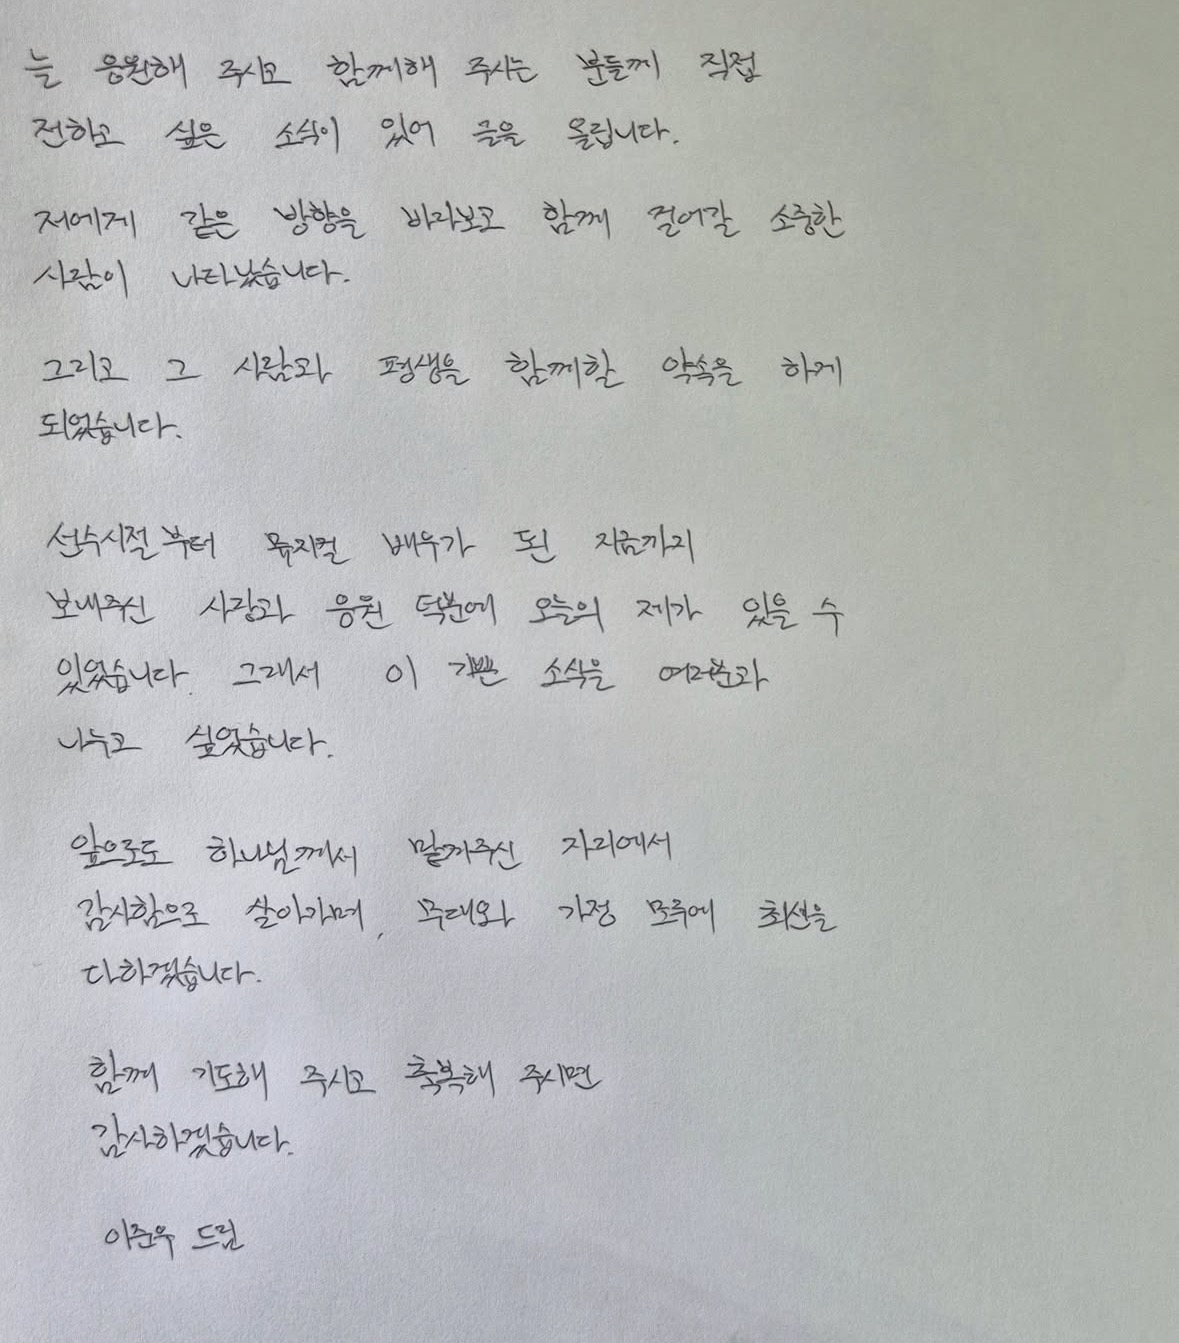 늘 응원해 주시고 함께해 주시는 분들께 직접
전하고 싶은 소식이 있어 글을 올립니다.
저에게 같은 방향을 바라보고 함께 걸어갈 소중한
사람이 나타났습니다.
그리고 그 사람과 평생을 함께할 약속을 하게
되었습니다.
선수시절부터 뮤지컬 배우가 된 지금까지
보내주신 사랑과 응원 덕분에 오늘의 제가 있을 수
있었습니다. 그래서 이 기쁜 소식을 여러분과
나누고 싶었습니다.
앞으로도 하나님께서 맡겨주신 자리에서
감사함으로 살아가며, 무대와 가정 모두에 최선을
다하겠습니다.
함께 기도해 주시고 축복해 주시면
감사하겠습니다.
이준우 드림